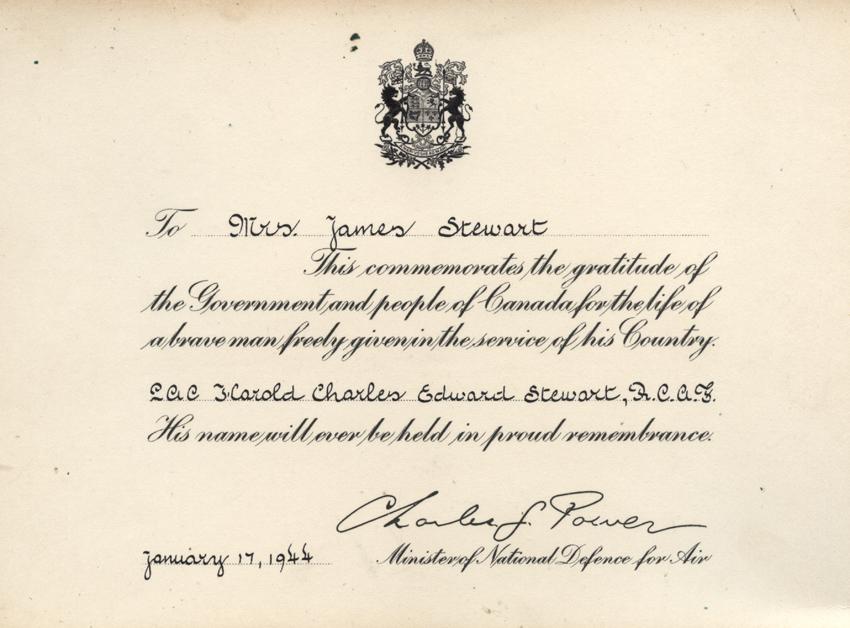 To Mrs. James Stewart
This commemorates the gratitude of
the Government and people of Canada for the life of
a brave man freely given in the service of his Country.
LAC Harold Charles Edward Stewart, R.C.A.F.
His name will ever be held in proud remembrance.
Charles G. Power
January 17, 1944 Minister of National Defence for Air